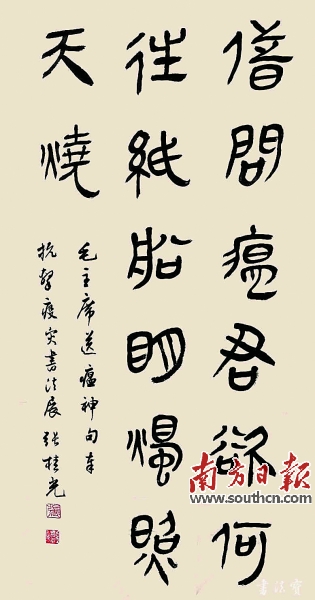 借問瘟君欲何
往紙船明燭照
天燒
毛主席送瘟神句奉
抗擊疫災書法展 張桂光
南方日报
www.southcn.com